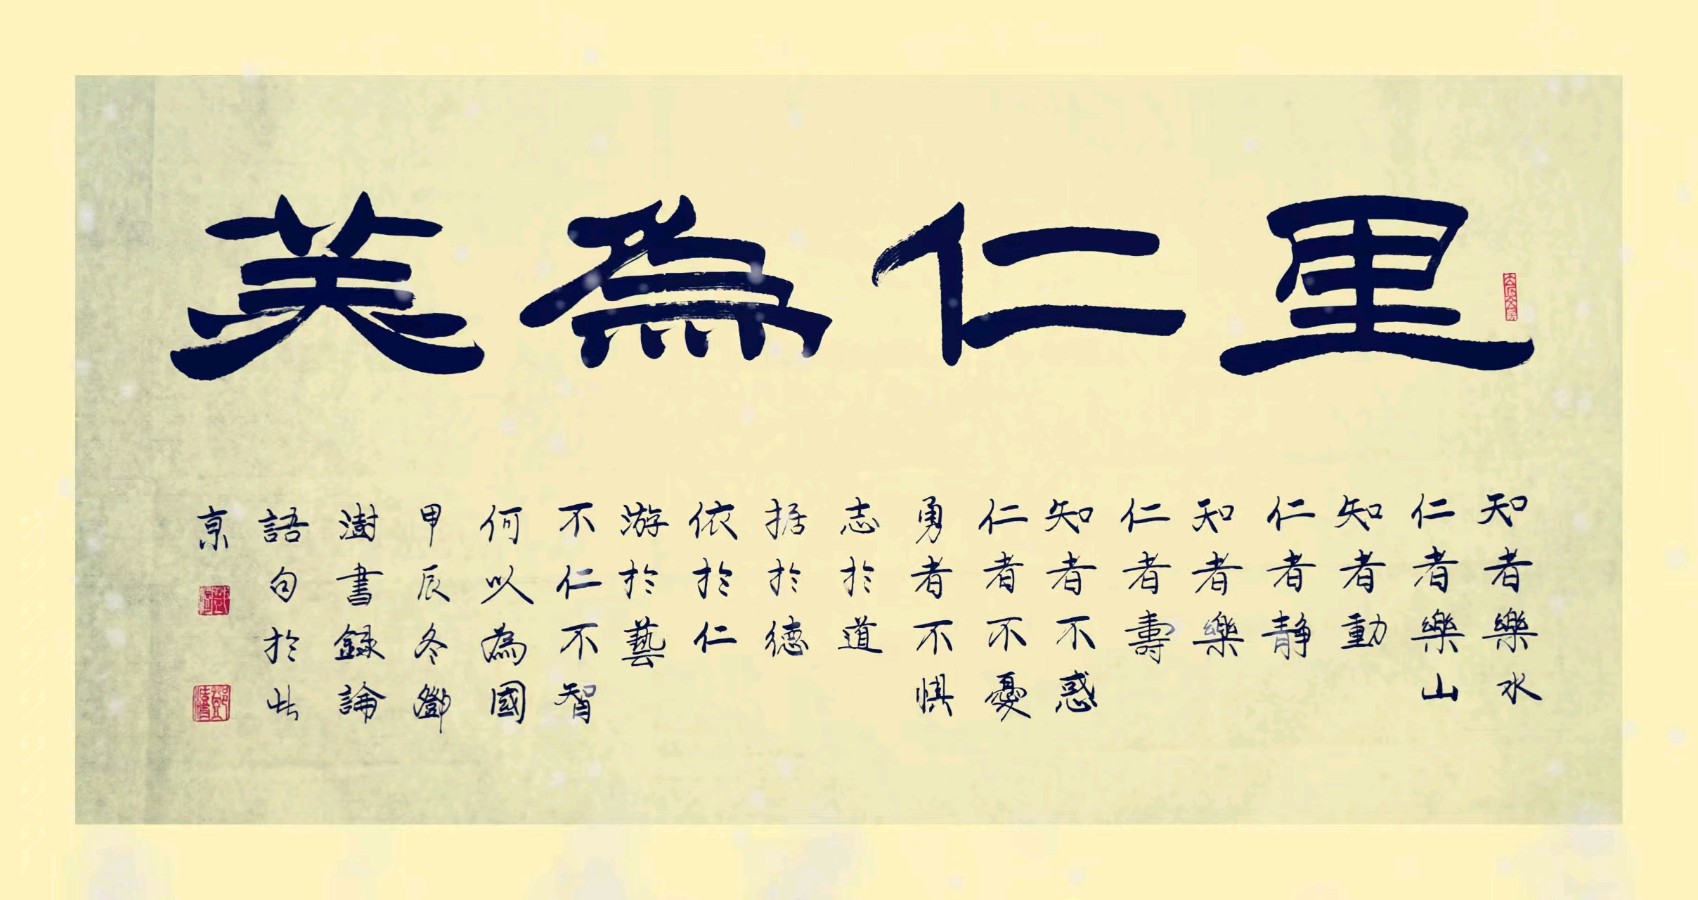 里仁為美
知者樂水
仁者樂山
知者動
仁者靜
知者樂
仁者壽
知者不惑
仁者不憂
勇者不惧
志於道
据於德
依於仁
游於藝
不仁不智
何以為國
甲辰冬鄧
澍書錄論
語句於此
京